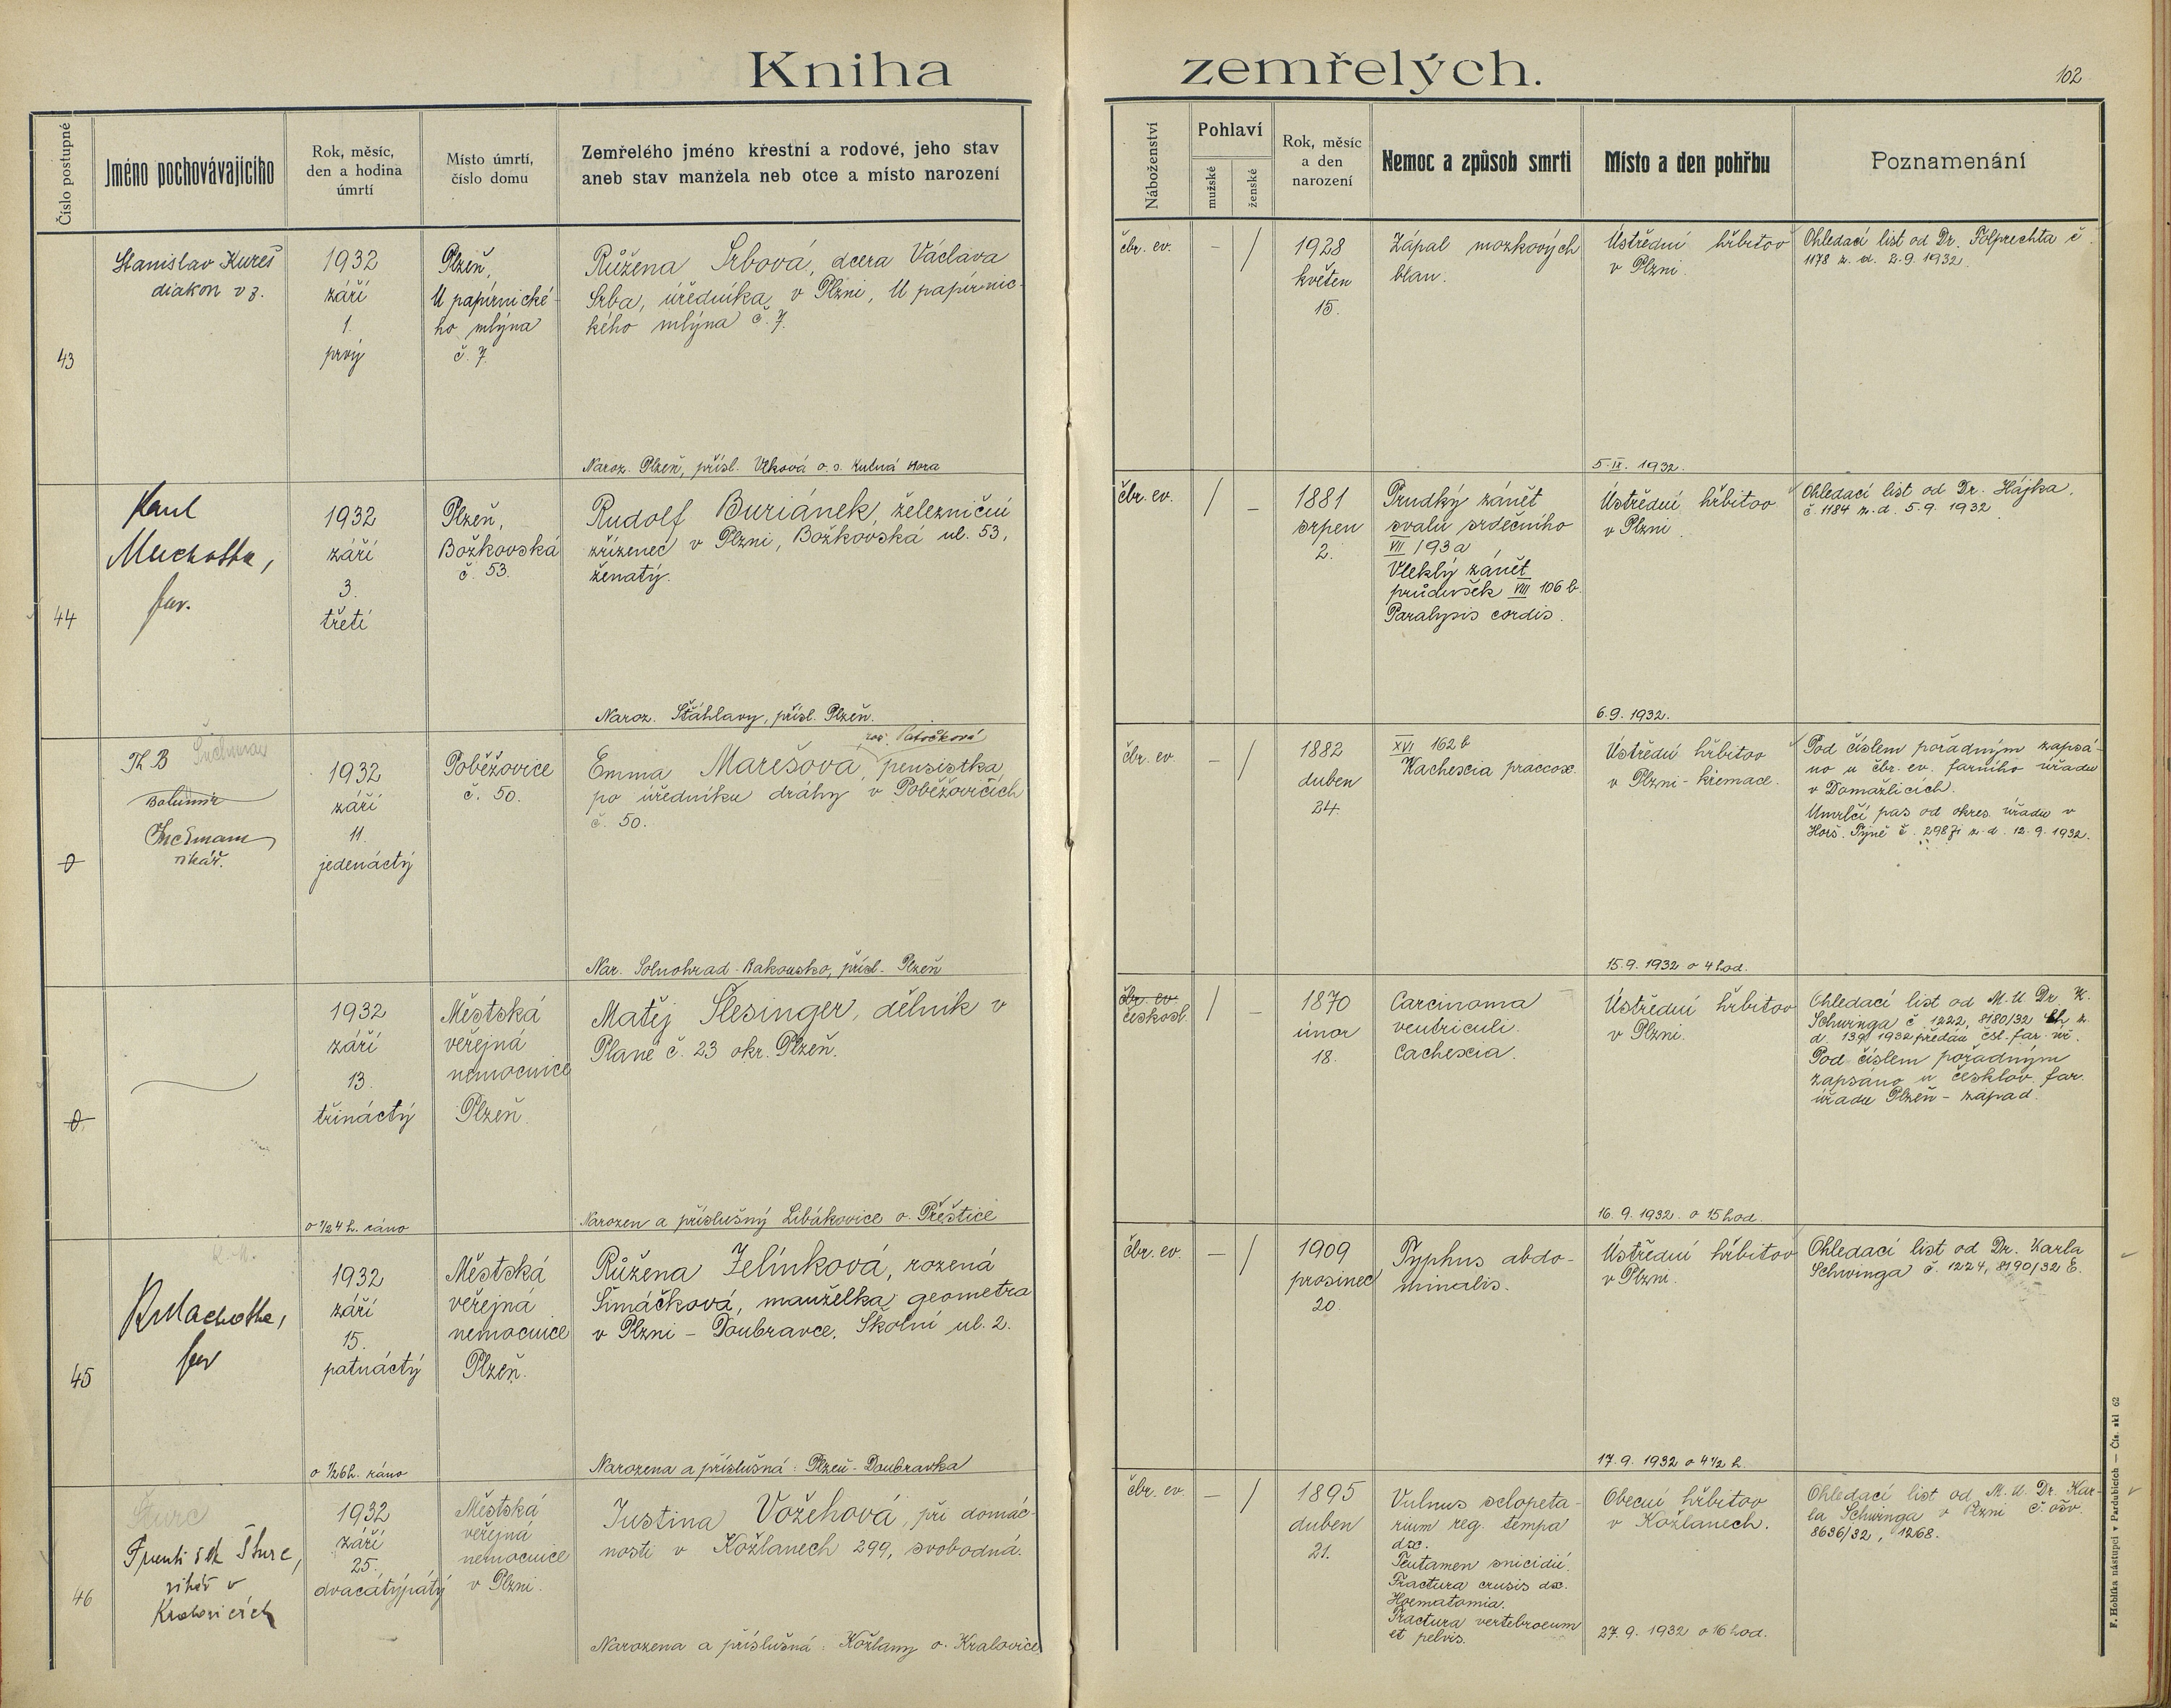 Kniha zemřelých.
102
Číslo postupné
Jméno pochovávajícího
Rok, měsíc,
den a hodina
úmrtí
Místo úmrtí,
číslo domu
Zemřelého jméno křestní a rodové, jeho stav
aneb stav manžela neb otce a místo narození
Náboženství
Pohlaví
mužské
ženské
Rok, měsíc
a den
narození
Nemoc a způsob smrti
Místo a den pohřbu
Poznamenání
43
Stanislav Kureš
diakon v z.
1932
září
1.
prvý
Plzeň,
U papírnické-
ho mlýna
č. 7.
Růžena Srbová, dcera Václava
Srba, úředníka v Plzni, U papírnic-
kého mlýna č. 7.
Naroz. Plzeň, přísl. Vlková o. s. Kutná Hora
čbr. ev.
–
/
1928
květen
15.
Zápal mozkových
blan.
Ústřední hřbitov
v Plzni.
5. IX. 1932.
Ohledací list od Dr. Folprechta č.
1178 z. d. 2.9. 1932.
44
Karel
far.
1932
září
3.
třetí
Plzeň,
Božkovská
č. 53.
Rudolf Buriánek, železniční
zřízenec v Plzni, Božkovská ul. 53,
ženatý.
Naroz. Šťáhlavy, přísl. Plzeň.
čbr. ev.
/
–
1881
srpen
2.
Prudký zánět
svalu srdečního
VII /93a,
Vleklý zánět
průdušek VIII 106 b.
Paralysis cordis.
Ústřední hřbitov
v Plzni.
6.9. 1932.
Ohledací list od Dr. Hájka,
č. 1184 z. d. 5.9. 1932
Th B
Bohumír
vikář.
1932
září
11.
jedenáctý
Poběžovice
č. 50.
roz. Patočková
Emma Marešová, pensistka
po úředníku dráhy v Poběžovicích
č. 50.
Nar. Solnohrad - Rakousko, přísl. Plzeň
čbr. ev.
–
/
1882
duben
24.
XVI 162 b
Kachexia praecox.
Ústřední hřbitov
v Plzni - křemace.
15.9. 1932 o 4 hod.
Pod číslem pořadným zapsá-
no u čbr. ev. farního úřadu
v Domažlicích.
Umrlčí pas od okres. úřadu v
Horš. Týně č. z. d. 12.9. 1932.
1932
září
13.
třináctý
o 1/2 4 h. ráno
Městská
veřejná
nemocnice
Plzeň.
Matěj Šlesinger, dělník v
Plané č. 23 okr. Plzeň.
Narozen a příslušný Libákovice o. Přeštice
čbr. ev.
českosl.
/
–
1870
únor
18.
Carcinoma
ventriculi.
Cachexia.
Ústřední hřbitov
v Plzni.
16. 9. 1932. o 15 hod.
Ohledací list od M. U Dr. K.
Schwinga č. 1222, 8180/32 z.
d. 13.9 1932 předán čsl. far. úř.
Pod číslem pořadným
zapsáno u česklov. far.
úřadu Plzeň - západ.
45
far
1932
září
15.
patnáctý
o 1/2 6 h. ráno
Městská
veřejná
nemocnice
Plzeň.
Růžena Jelínková, rozená
Šimáčková, manželka geometra
v Plzni - Doubravce, Školní ul. 2.
Narozena a příslušná: Plzeň - Doubravka
čbr. ev.
–
/
1909
prosinec
20.
Typhus abdo-
minalis.
Ústřední hřbitov
v Plzni.
17.9. 1932 o 4 1/2 h.
Ohledací list od Dr. Karla
Schwinga č. 1224, 8190/32 E.
46
Šturc
František Šturc,
vikář v
Kralovicích
1932
září
25.
dvacátýpátý
Městská
veřejná
nemocnice
v Plzni.
Justina Vožehová, při domác-
nosti v Kožlanech 299, svobodná.
Narozena a příslušná: Kožlany o. Kralovice
čbr. ev.
–
/
1895
duben
21.
Vulnus sclopeta-
rium reg. tempa
dx.
Tentamen suicidií.
Fractura crusis dx.
Haematomia.
Fractura vertebraeum
et pelvis.
Obecní hřbitov
v Kožlanech.
27. 9. 1932 o 16 hod.
Ohledací list od M. U. Dr. Kar-
la Schwinga v Plzni č. ošv.
8636/32, 1268.
F. Hoblíka nástupci v Pardubicích — Čís. skl 62